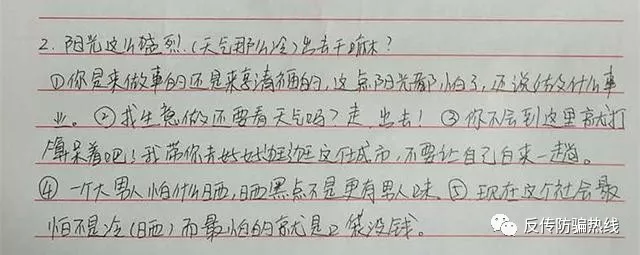 2. 阳光这么强烈.(天气那么冷)出去干嘛?
①你是来做事的还是来享清福的,这点阳光都怕了,还说做什么事
业。②找生意做还要看天气吗?走,出去!③你不会到这里就打
算呆着吧!我带你去好好逛逛这个城市,不要让自己白来一趟。
④ 一个大男人怕什么晒,晒黑点不是更有男人味。⑤现在这个社会最
怕不是冷(晒)而最怕的就是口袋没钱。
反传防骗热线